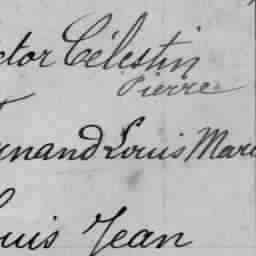 ctor Célestin
Pierre
rnand Louis Mari
ouis Jean